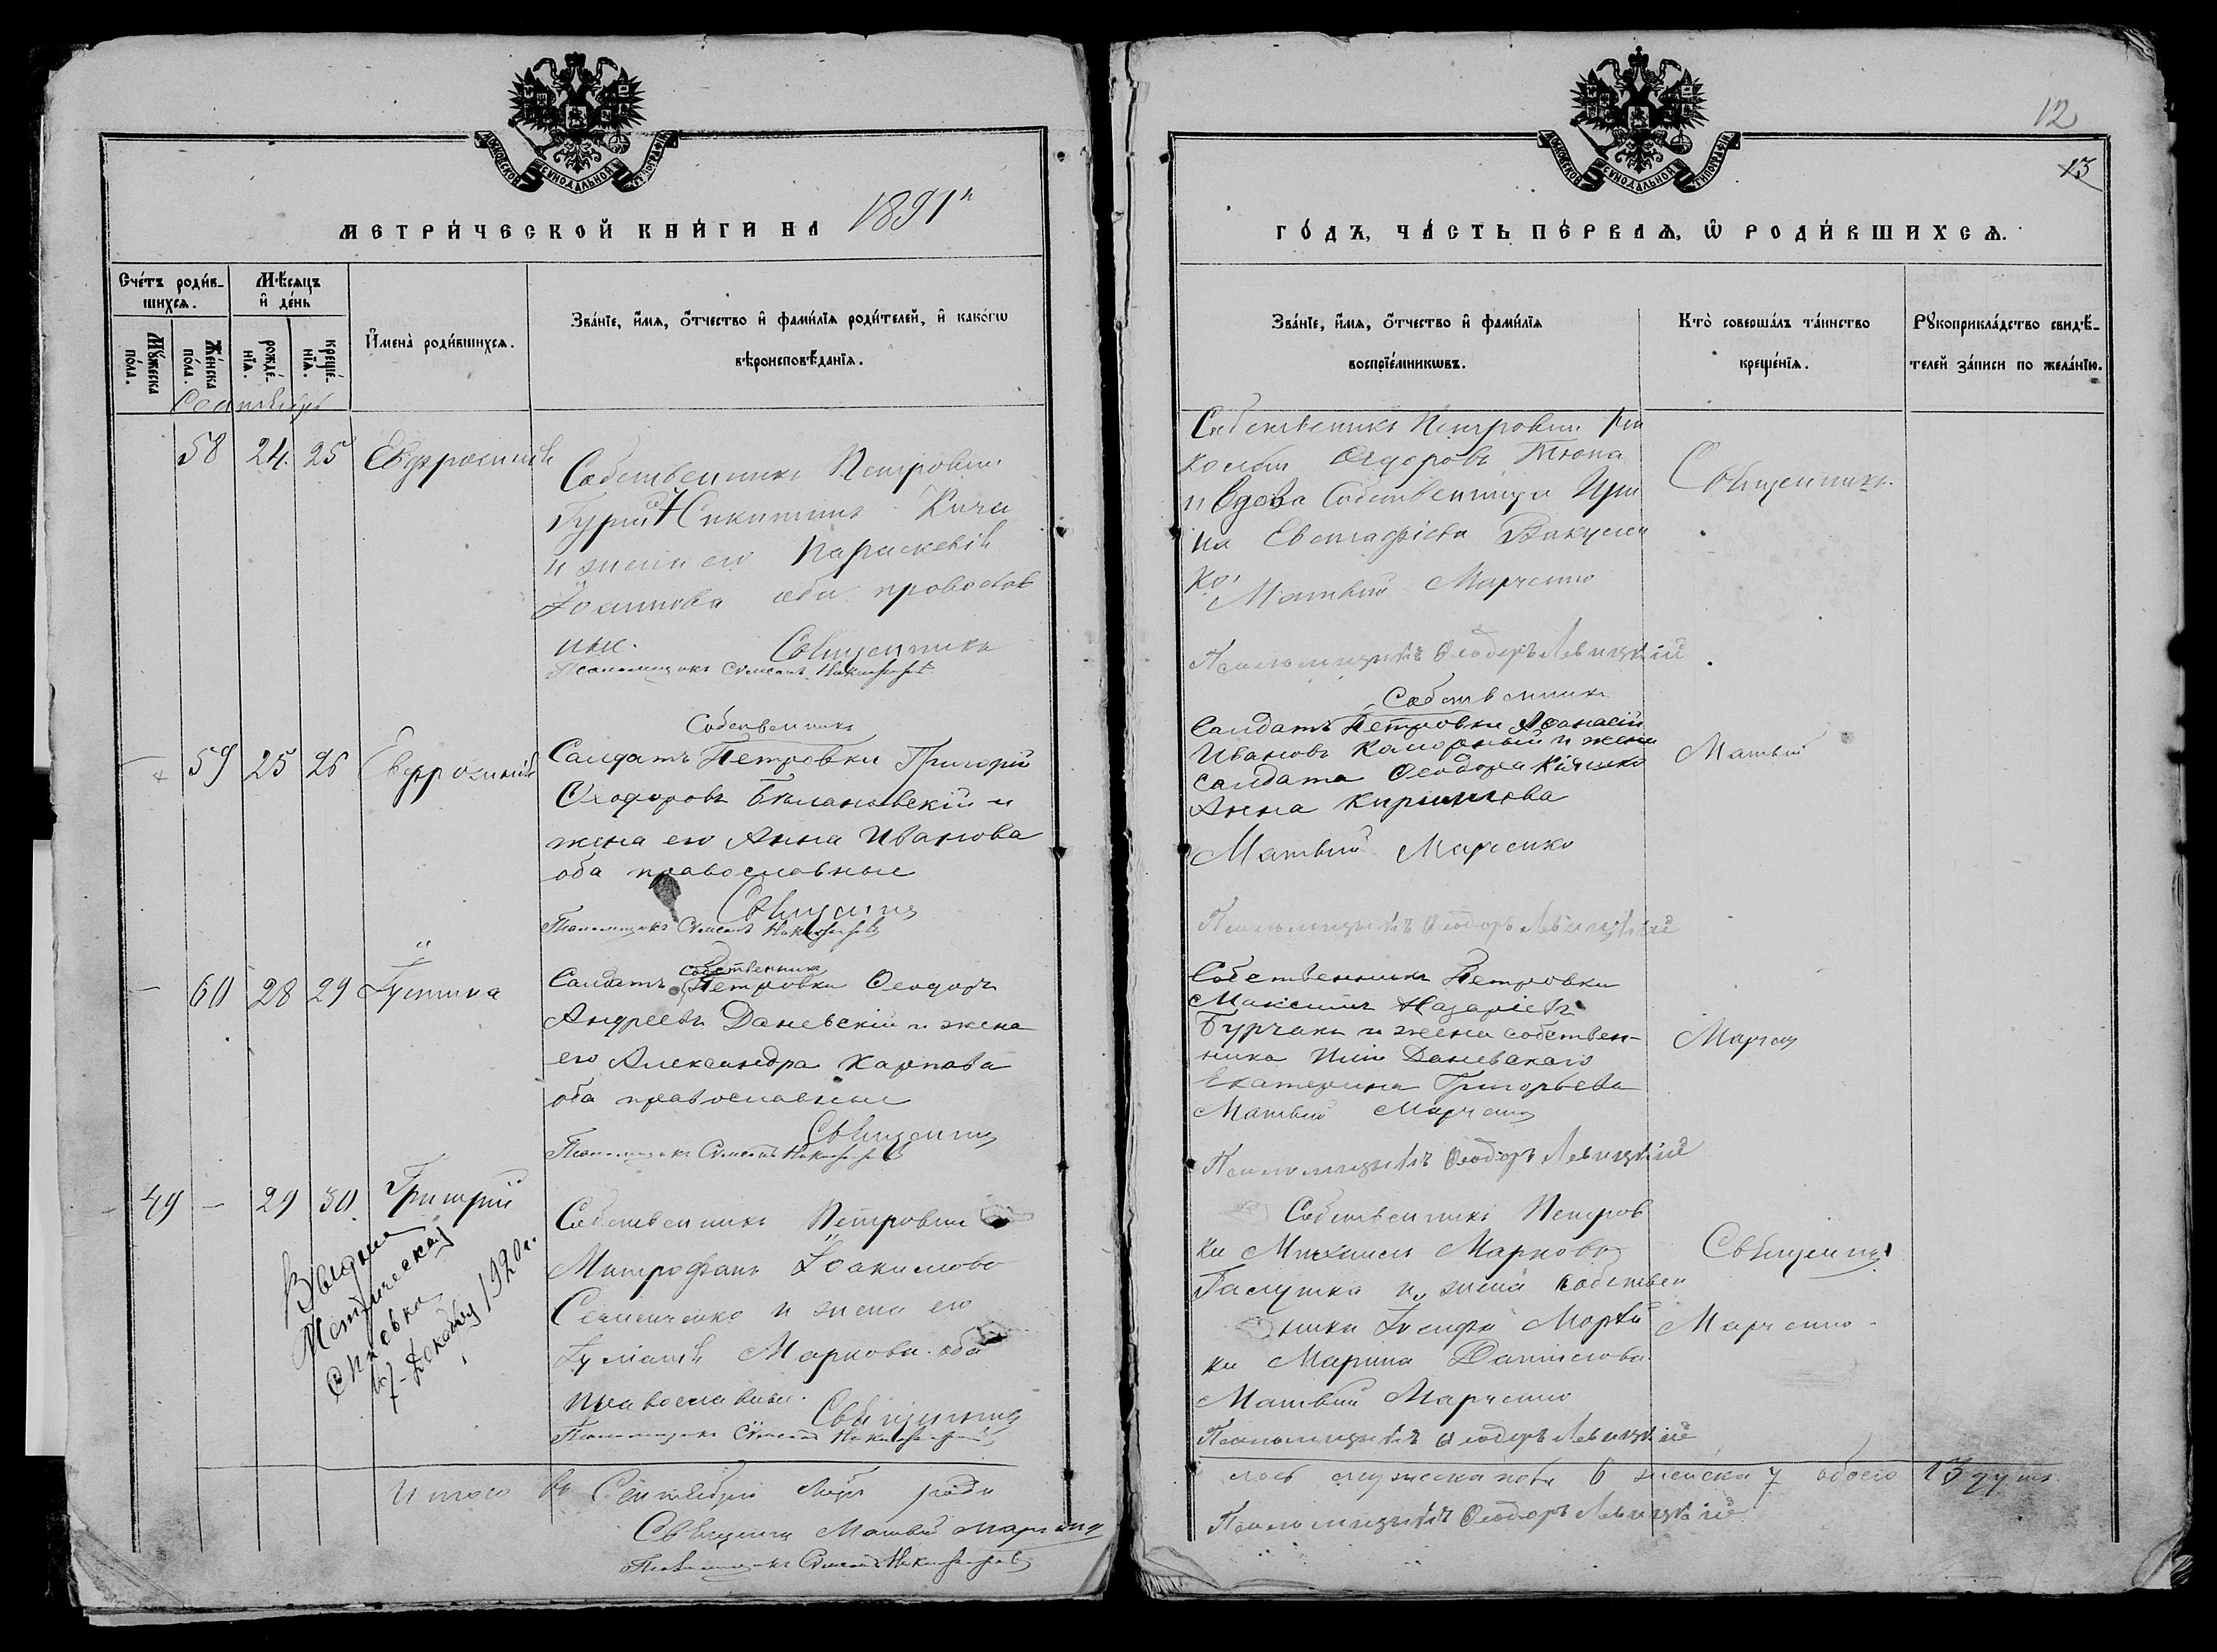 МОСКОВСКОЙ СѴНОДАЛЬНОЙ ТИПОГРАФІИ
МЕТРИ́ЧЕСКОЙ КНИ́ГИ НА 1891й
Сче́тъ роди́в-
шихся.
Мѣ́сяцъ
и҆ де́нь
Му́жеска
по́ла.
Же́нска
по́ла.
рожде́-
нїя.
креще́-
нїя.
И҆мена̀ роди́вшихся.
Зва́нїе, и҆́мя, ѻ҆́тчество и҆ фами́лїя роди́телей, и҆ како́гѡ
вѣроисповѣ́данїя.
Сентябрь
58 24 25 Евфросинія
Собственникъ Петровки
Гурій Никитинъ
и жена его Параскевія
Іоаннова оба православ
ные.
Священникъ
Псаломщикъ
59 25 26 Евфросинія
Собственникъ
Солдатъ Петровки Григорій
Ѳеодоровъ
жена его Анна Иванова
оба православные
Священникъ
Псаломщикъ
60 28 29 Іустина
Собственникъ
Солдатъ Петровки Ѳеодоръ
Андреевъ Даневскій и жена
его Александра Карпова
оба православные
Священникъ
Псаломщикъ
49 — 29 30 Григорій
Собственникъ Петровки
Митрофанъ Іоакимовъ
Семенченко и жена его
Іуліанія Маркова оба
православные.
Священникъ
Псаломщикъ
Выдана
Метрическая
выписка
7 Декабря 1920 г.
Итого въ Сентябрѣ роди
Священникъ Матвѣй Марченко
Псаломщикъ
12
13
МОСКОВСКОЙ СѴНОДАЛЬНОЙ ТИПОГРАФІИ
ГО́ДЪ, ЧА́СТЬ ПЕ́РВАѦ, Ѽ РОДИ́ВШИХСѦ.
Зва́нїе, и҆́мя, ѻ҆́тчество и҆ фами́лїя
воспрїе́мникѡвъ.
Кто̀ соверша́лъ та́инство
креще́нїя.
Рꙋкоприкла́дство свидѣ́-
телей за́писи по жела́нїю.
Собственникъ Петровки Ни
колай Ѳедоровъ
и вдова собственница Ири
на Евстафіева Вакулен
ко.
Матвѣй Марченко
Священникъ
Псаломщикъ Ѳеодоръ Левицкій
Собственникъ
Солдатъ Петровки Аѳанасій
Ивановъ и жена
солдата Ѳеодора
Анна Кириллова
Матвѣй Марченко
Матвѣй
Псаломщикъ Ѳеодоръ Левицкій
Собственникъ Петровки
Максимъ Назаріевъ
Бурчакъ и жена собствен-
ника Даневскаго
Екатерина Григорьева
Матвѣй Марченко
Марчен
Псаломщикъ Ѳеодоръ Левицкій
Собственникъ Петров
ки Михаилъ Марковъ
и жена собствен
ника Іосифа
Марина Даниилова
Матвѣй Марченко
Священникъ
Марченко
Псаломщикъ Ѳеодоръ Левицкій
лось мужеска пола 6 женска 7 обоего 13 душъ.
Псаломщикъ Ѳеодоръ Левицкій